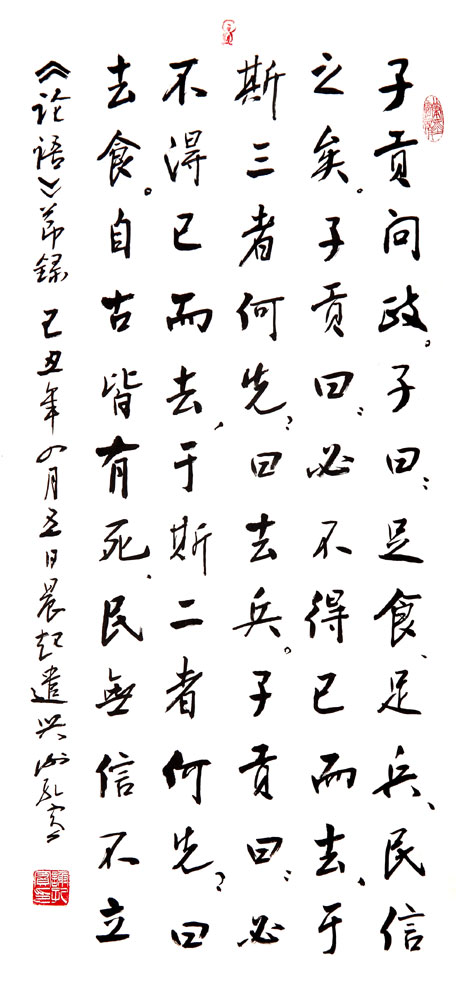 子贡问政。子曰：足食、足兵、民信
之矣。子贡曰：必不得已而去、于
斯三者何先？曰去兵。子贡曰：必
不得已而去，于斯二者何先？曰
去食。自古皆有死、民無信不立
《论语》節録 己丑年四月五日晨起遣兴 谢孔宾